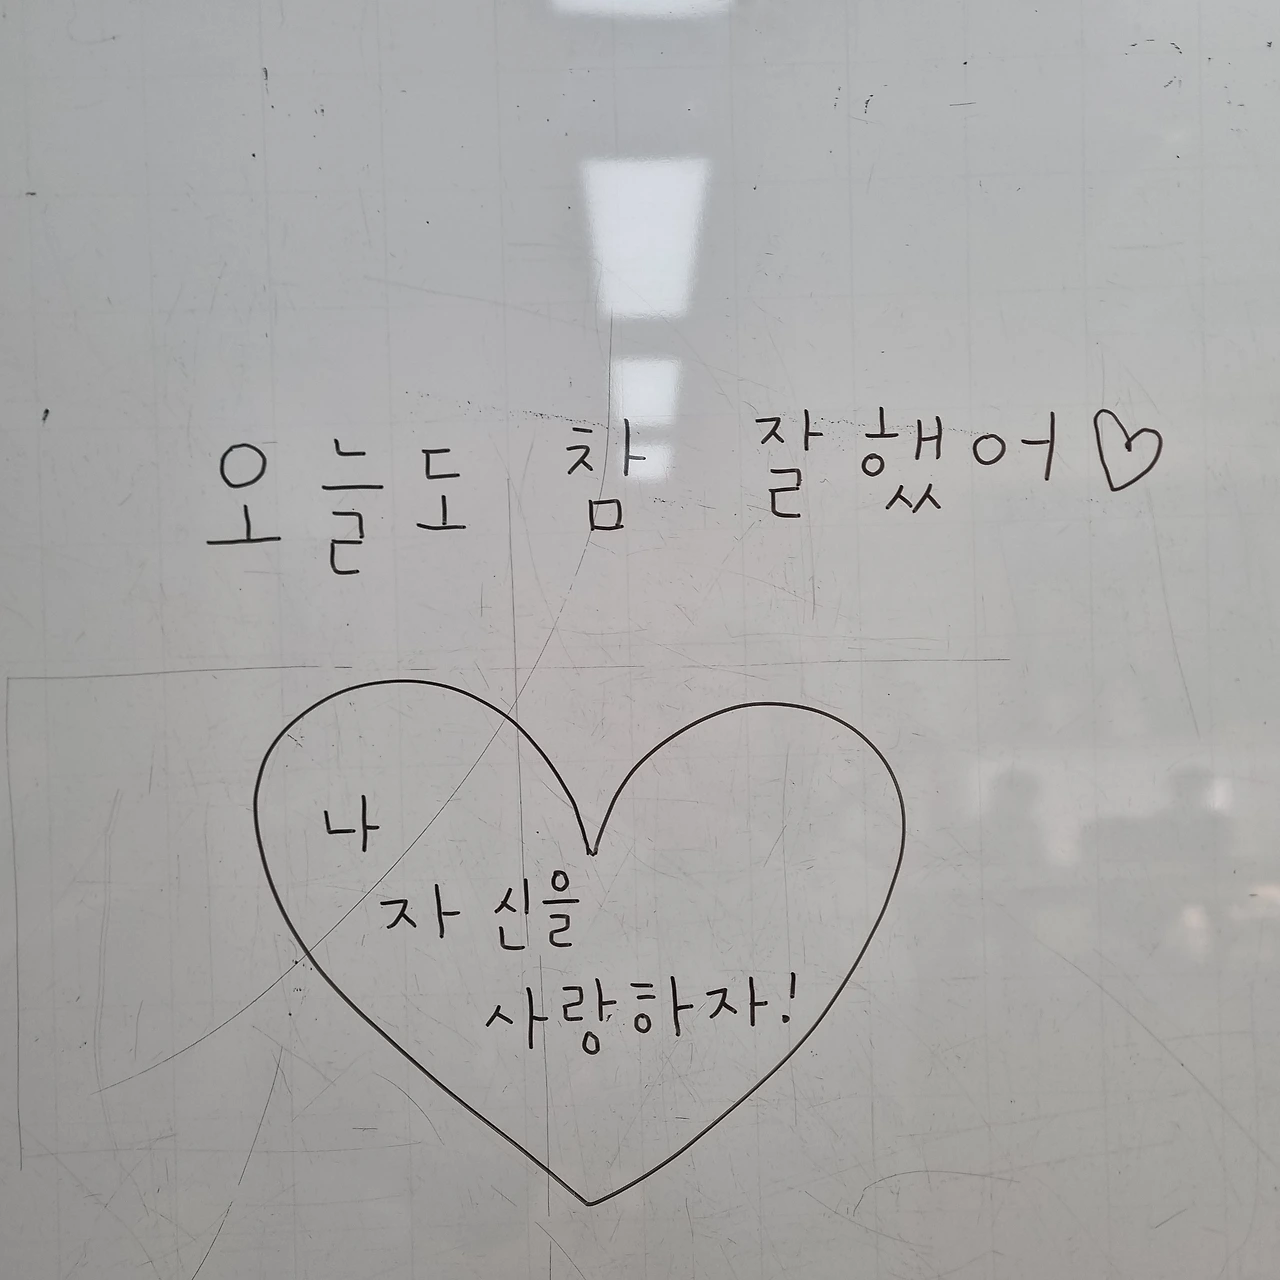 오늘도 참 잘했어♡
나
자신을
사랑하자!